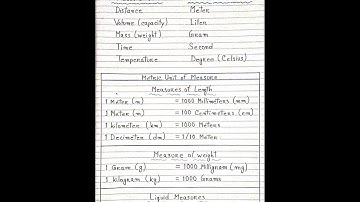 Distance Meter
Volume (capacity) Liter
Mass (weight) Gram
Time Second
Temperature Degree (Celsius)
Metric Unit of Measure
Measures of Length
1 Meter (m) = 1000 Millimeters (mm)
1 Meter (m) = 100 Centimeters (cm)
1 Kilometer (km) = 1000 Meters
1 Decimeter (dm) = 1/10 Meter
Measure of weight
1 Gram (g) = 1000 Milligram (mg)
1 kilogram (kg) = 1000 Grams
Liquid Measures